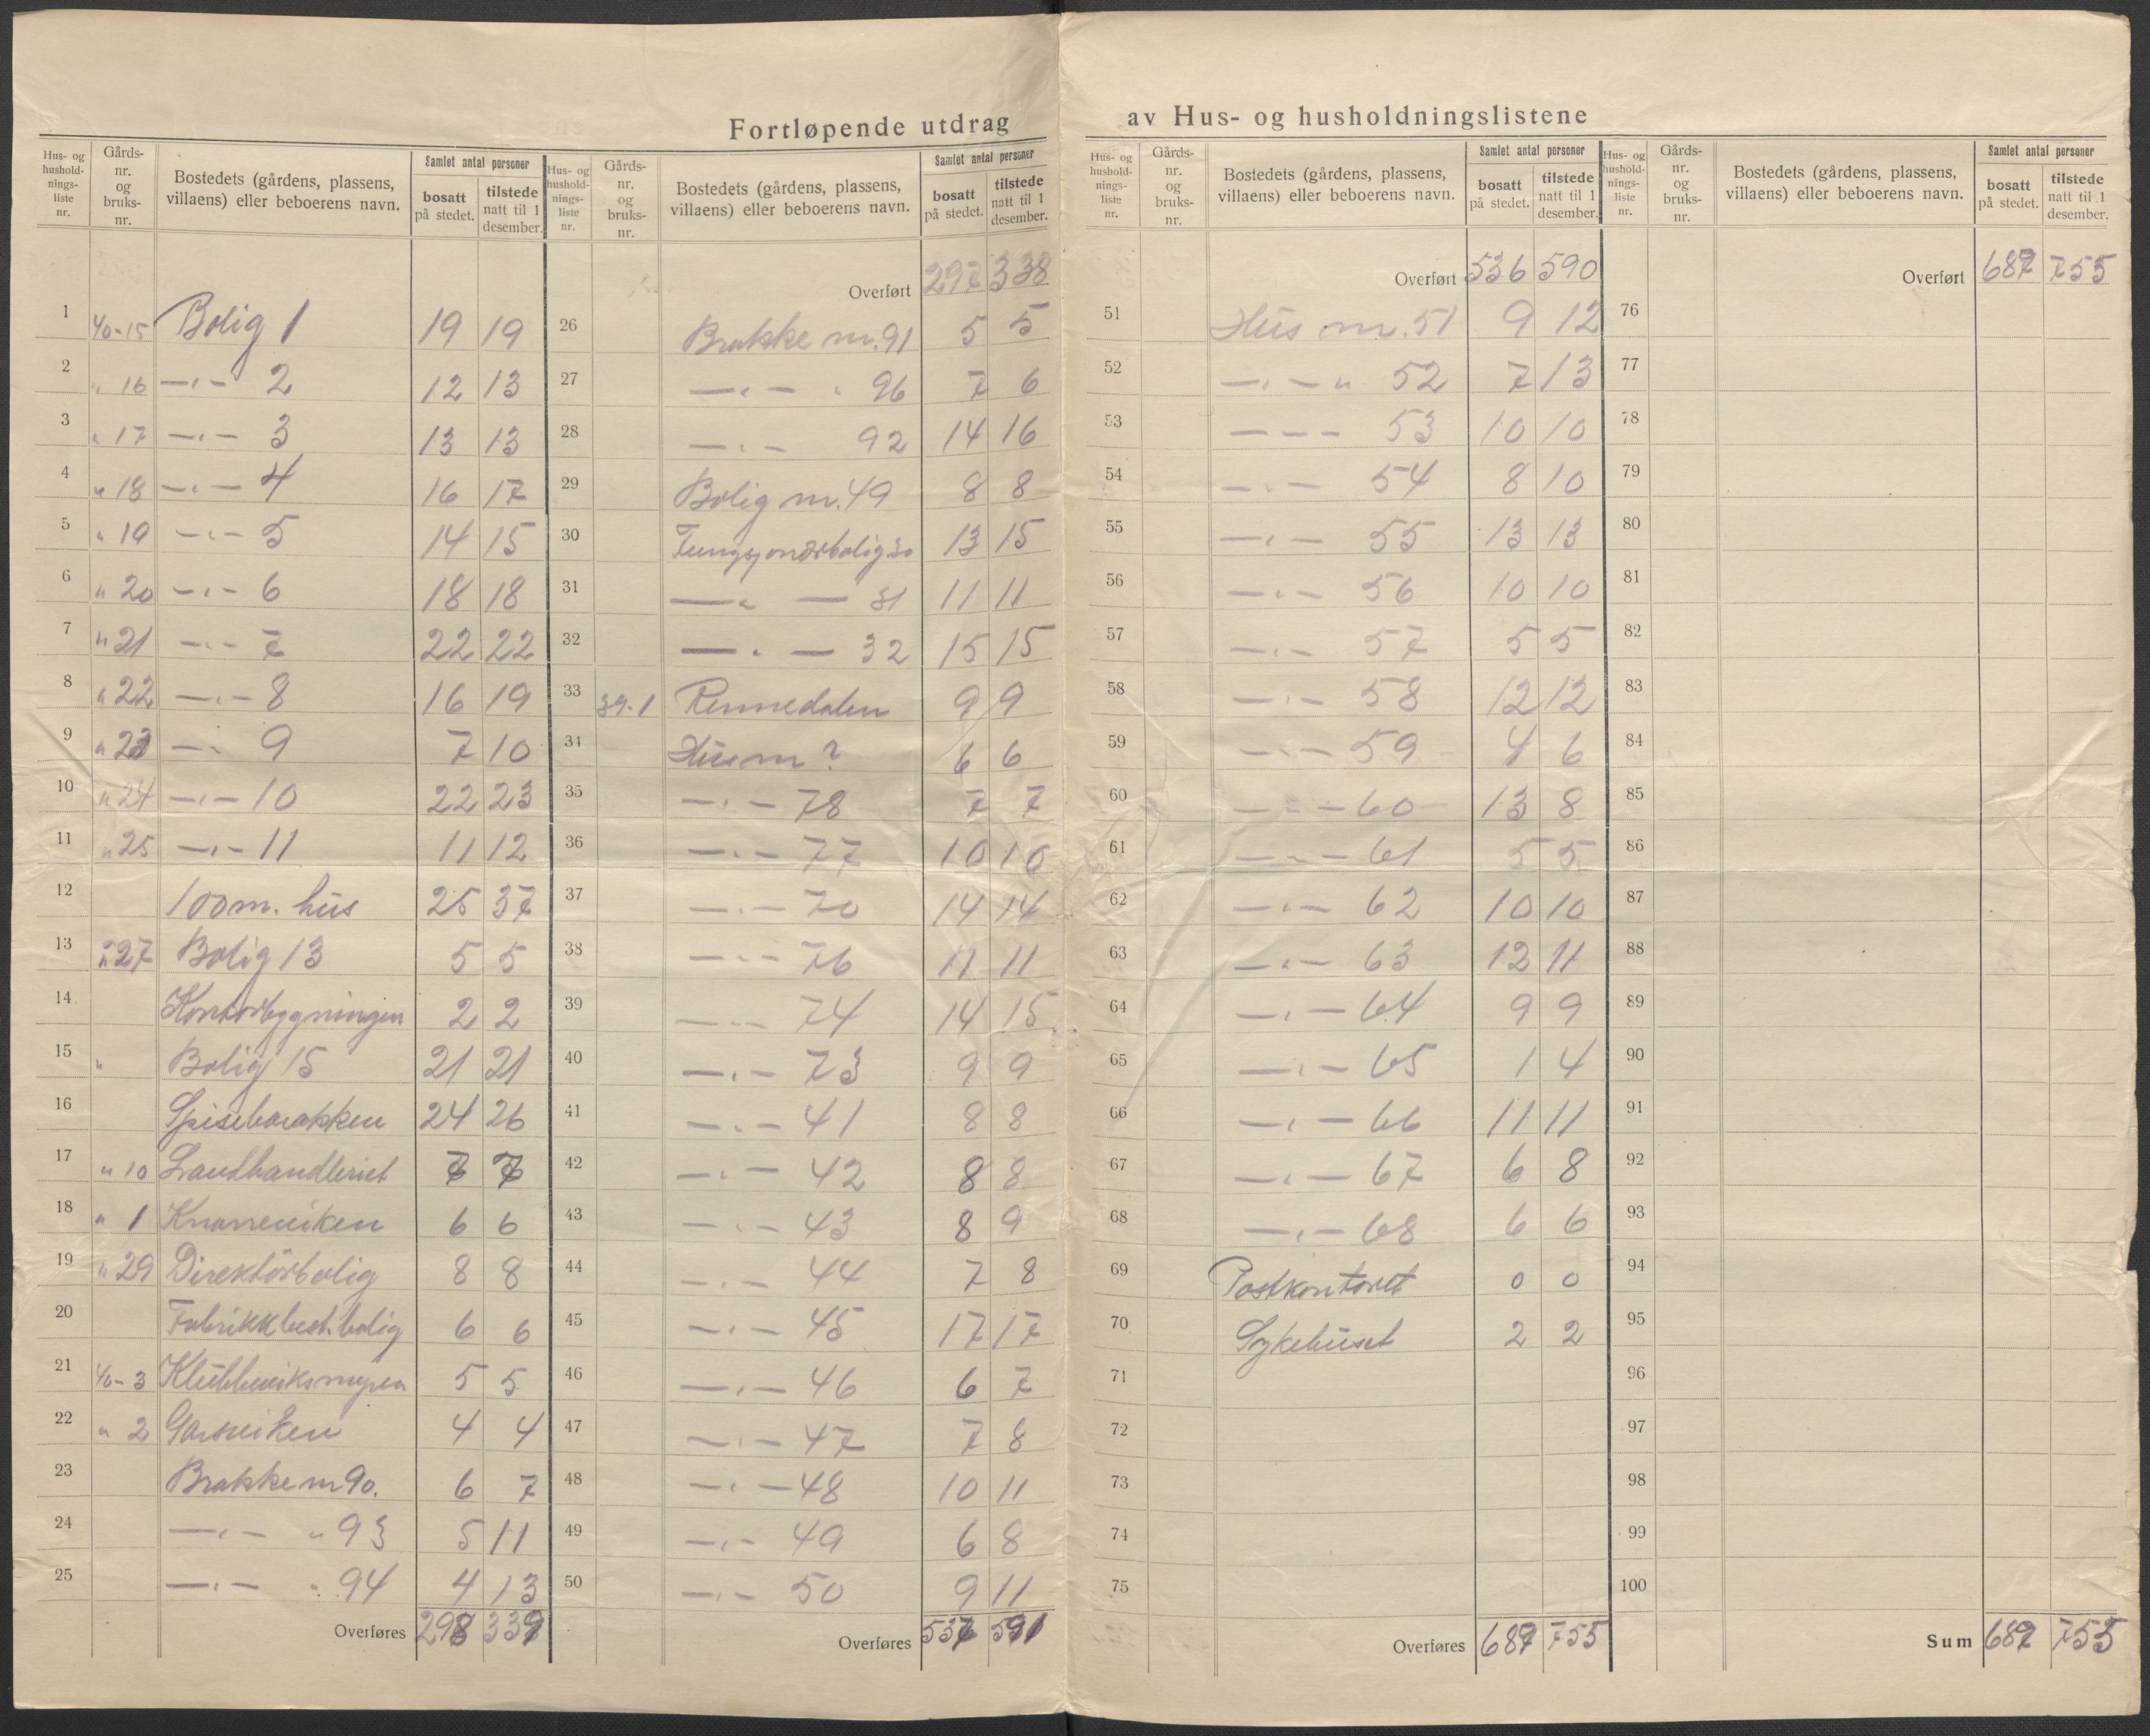 Fortløpende utdrag av Hus- og husholdningslistene
Hus- og hushold-nings-liste nr. | Gårds-nr. og bruks-nr. | Bostedets (gårdens, plassens, villaens) eller beboerens navn. | Samlet antal personer | bosatt på stedet. | tilstede natt til 1 desember.
1 | 40-15 | Bolig 1 | 19 | 19
2 | " 16 | —"— 2 | 12 | 13
3 | " 17 | —"— 3 | 13 | 13
4 | " 18 | —"— 4 | 16 | 17
5 | " 19 | —"— 5 | 14 | 15
6 | " 20 | —"— 6 | 18 | 18
7 | " 21 | —"— 7 | 22 | 22
8 | " 22 | —"— 8 | 16 | 19
9 | " 23 | —"— 9 | 7 | 10
10 | " 24 | —"— 10 | 22 | 23
11 | " 25 | —"— 11 | 11 | 12
12 | 100 m. hus | 25 | 37
13 | " 27 | Bolig 13 | 5 | 5
14 | Kontorbygningen | 2 | 2
15 | " | Bolig 15 | 21 | 21
16 | Spisebarakken | 24 | 26
17 | " 10 | Landhandleriet
18 | " 1 | Knarreviken | 6 | 6
19 | " 29 | Direktörbolig | 8 | 8
20 | Fabrikkbest.bolig | 6 | 6
21 | 40-3 | 5 | 5
22 | " 2 | Garneviken | 4 | 4
23 | Brakke nr 90. | 6 | 7
24 | —"— " 93 | 5 | 11
25 | —"— " 94 | 4 | 13
Overføres
Hus- og hushold-nings-liste nr. | Gårds-nr. og bruks-nr. | Bostedets (gårdens, plassens, villaens) eller beboerens navn. | Samlet antal personer | bosatt på stedet. | tilstede natt til 1 desember.
Overført | 297 | 338
26 | Brakke nr. 91 | 5 | 5
27 | —"— " 96 | 7 | 6
28 | —"— 92 | 14 | 16
29 | Bolig nr. 49 | 8 | 8
30 | Fungsjonærbolig 30 | 13 | 15
31 | —"— 31 | 11 | 11
32 | —"— 32 | 15 | 15
33 | 39.1 | Rennedalen | 9 | 9
34 | Hus nr ? | 6 | 6
35 | —"— 78 | 7 | 7
36 | —"— 77 | 10 | 10
37 | —"— 70 | 14 | 14
38 | —"— 76 | 11 | 11
39 | —"— 74 | 14 | 15
40 | —"— 73 | 9 | 9
41 | —"— 41 | 8 | 8
42 | —"— 42 | 8 | 8
43 | —"— 43 | 8 | 9
44 | —"— 44 | 7 | 8
45 | —"— 45 | 17 | 17
46 | —"— 46 | 6 | 7
47 | —"— 47 | 7 | 8
48 | —"— 48 | 10 | 11
49 | —"— 49 | 6 | 8
50 | —"— 50 | 9 | 11
Overføres
Hus- og hushold-nings-liste nr. | Gårds-nr. og bruks-nr. | Bostedets (gårdens, plassens, villaens) eller beboerens navn. | Samlet antal personer | bosatt på stedet. | tilstede natt til 1 desember.
Overført | 536 | 590
51 | Hus nr. 51 | 9 | 12
52 | —"— " 52 | 7 | 13
53 | — — — 53 | 10 | 10
54 | —"— 54 | 8 | 10
55 | —"— 55 | 13 | 13
56 | —"— 56 | 10 | 10
57 | —"— 57 | 5 | 5
58 | —"— 58 | 12 | 12
59 | —"— 59 | 4 | 6
60 | —"— 60 | 13 | 8
61 | —"— 61 | 5 | 5
62 | —"— 62 | 10 | 10
63 | —"— 63 | 12 | 11
64 | —"— 64 | 9 | 9
65 | —"— 65 | 1 | 4
66 | —"— 66 | 11 | 11
67 | —"— 67 | 6 | 8
68 | —"— 68 | 6 | 6
69 | Postkontoret | 0 | 0
70 | Sykehuset | 2 | 2
71
72
73
74
75
Overføres | 687 | 755
Hus- og hushold-nings-liste nr. | Gårds-nr. og bruks-nr. | Bostedets (gårdens, plassens, villaens) eller beboerens navn. | Samlet antal personer | bosatt på stedet. | tilstede natt til 1 desember.
Overført | 687 | 755
76
77
78
79
80
81
82
83
84
85
86
87
88
89
90
91
92
93
94
95
96
97
98
99
100
Sum | 687 | 755